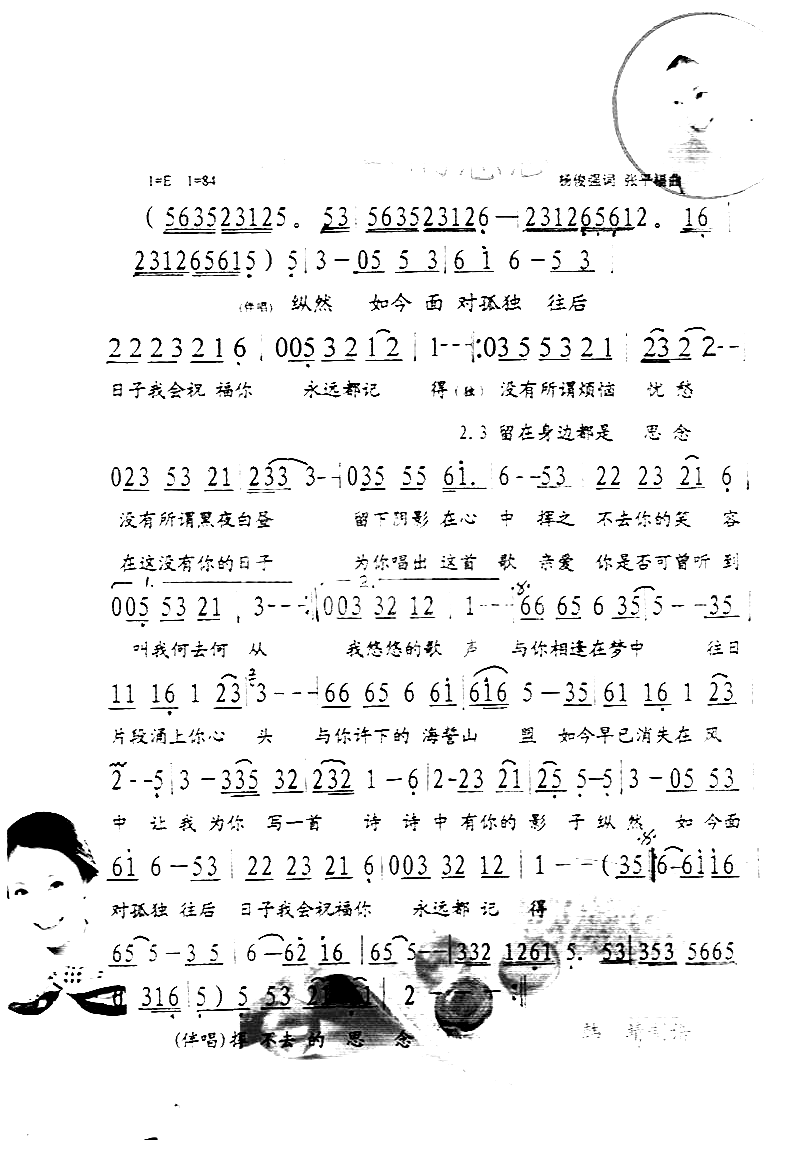 1=E 1=84
杨俊强词 张平福曲
( 563523125。 53 563523126—231265612。 16
231265615 ) 5 3–05 5 3 6 1 6–5 3
(伴唱) 纵然 如今 面 对孤独 往后
2 2 2 3 2 1 6 005 3 2 1 2 1--- :03 5 5 3 2 1 23 2 2--
日子我会祝 福你 永远都记 得(独) 没有所谓烦恼 忧愁
2.3 留在身边都是 思念
023 53 21 233 3-- 035 55 61. 6--53 22 23 21 6
没有所谓黑夜白昼 留下阴影 在心 中 挥之 不去你的笑 容
在这没有你的日子 为你唱出 这首 歌 亲爱 你是否可曾听到
1.
005 53 21 3--- 003 32 12 1--- 66 65 6 35 5--35
叫我何去何 从 我悠悠的歌 声 与你相逢在梦中 往日
11 16 1 23 3--- 66 65 6 61 616 5–35 61 16 1 23
片段涌上你心 头 与你许下的 海誓山 盟 如今早已消失在风
2--5 3–335 32 232 1–6 2-23 21 25 5–5 3–05 53
中 让 我 为你 写一首 诗 诗 中 有你的 影 子 纵然 如 今面
61 6–53 22 23 21 6 003 32 12 1--- (35 6–6116
对孤独 往后 日子我会祝福你 永远都 记 得
65 5–3 5 6–62 16 65 5-- 332 1261 5. 53 353 5665
316 5 ) 5 53 2 1 2---
(伴唱) 挥 不去 的 思 念